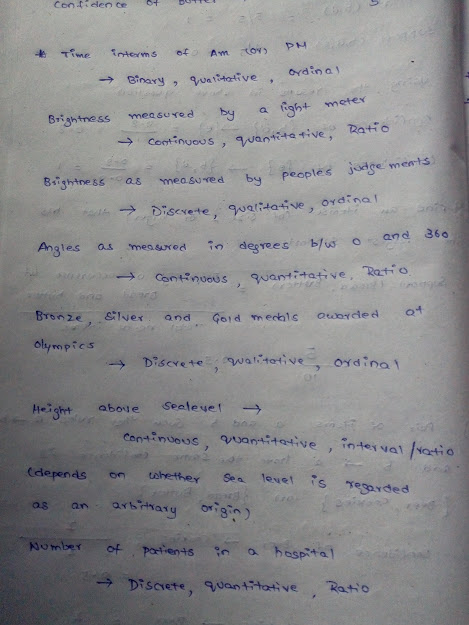 Confidence of
* Time interms of Am (or) PM
→ Binary, qualitative, ordinal
Brightness measured by a light meter
→ continuous, quantitative, Ratio
Brightness as measured by peoples judgements
→ Discrete, qualitative, ordinal
Angles as measured in degrees b/w 0 and 360
→ continuous, quantitative, Ratio
Bronze, Silver and Gold medals awarded at
Olympics
→ Discrete, qualitative, ordinal
Height above sealevel →
continuous, quantitative, interval/ratio
(depends on whether sea level is regarded
as an arbitrary origin)
Number of patients in a hospital
→ Discrete, quantitative, Ratio